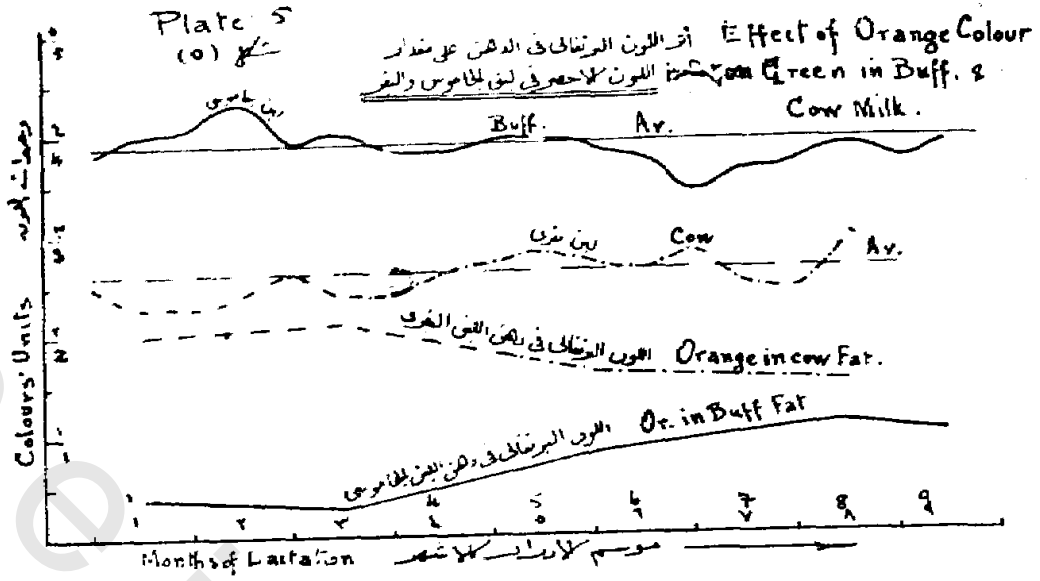 Plate 5
شكل (٥)
أثر اللون البرتقالى فى الدهن على مقدار
اللون الاخضر فى لبن الجاموس والبقر
Effect of Orange Colour
on Green in Buff. &
Cow Milk.
لبن جاموسى
Buff. Av.
لبن بقرى
Cow
Av.
اللون البرتقالى فى دهن اللبن البقرى
Orange in cow Fat.
اللون البرتقالى فى دهن اللبن الجاموسى
Or. in Buff Fat
Colours' Units
4 5 6 7 8 9
١ ٢ ٣ ٤ ٥ ٦ ٧ ٨ ٩
Months of Lactation
موسم الادرار بالاشهر